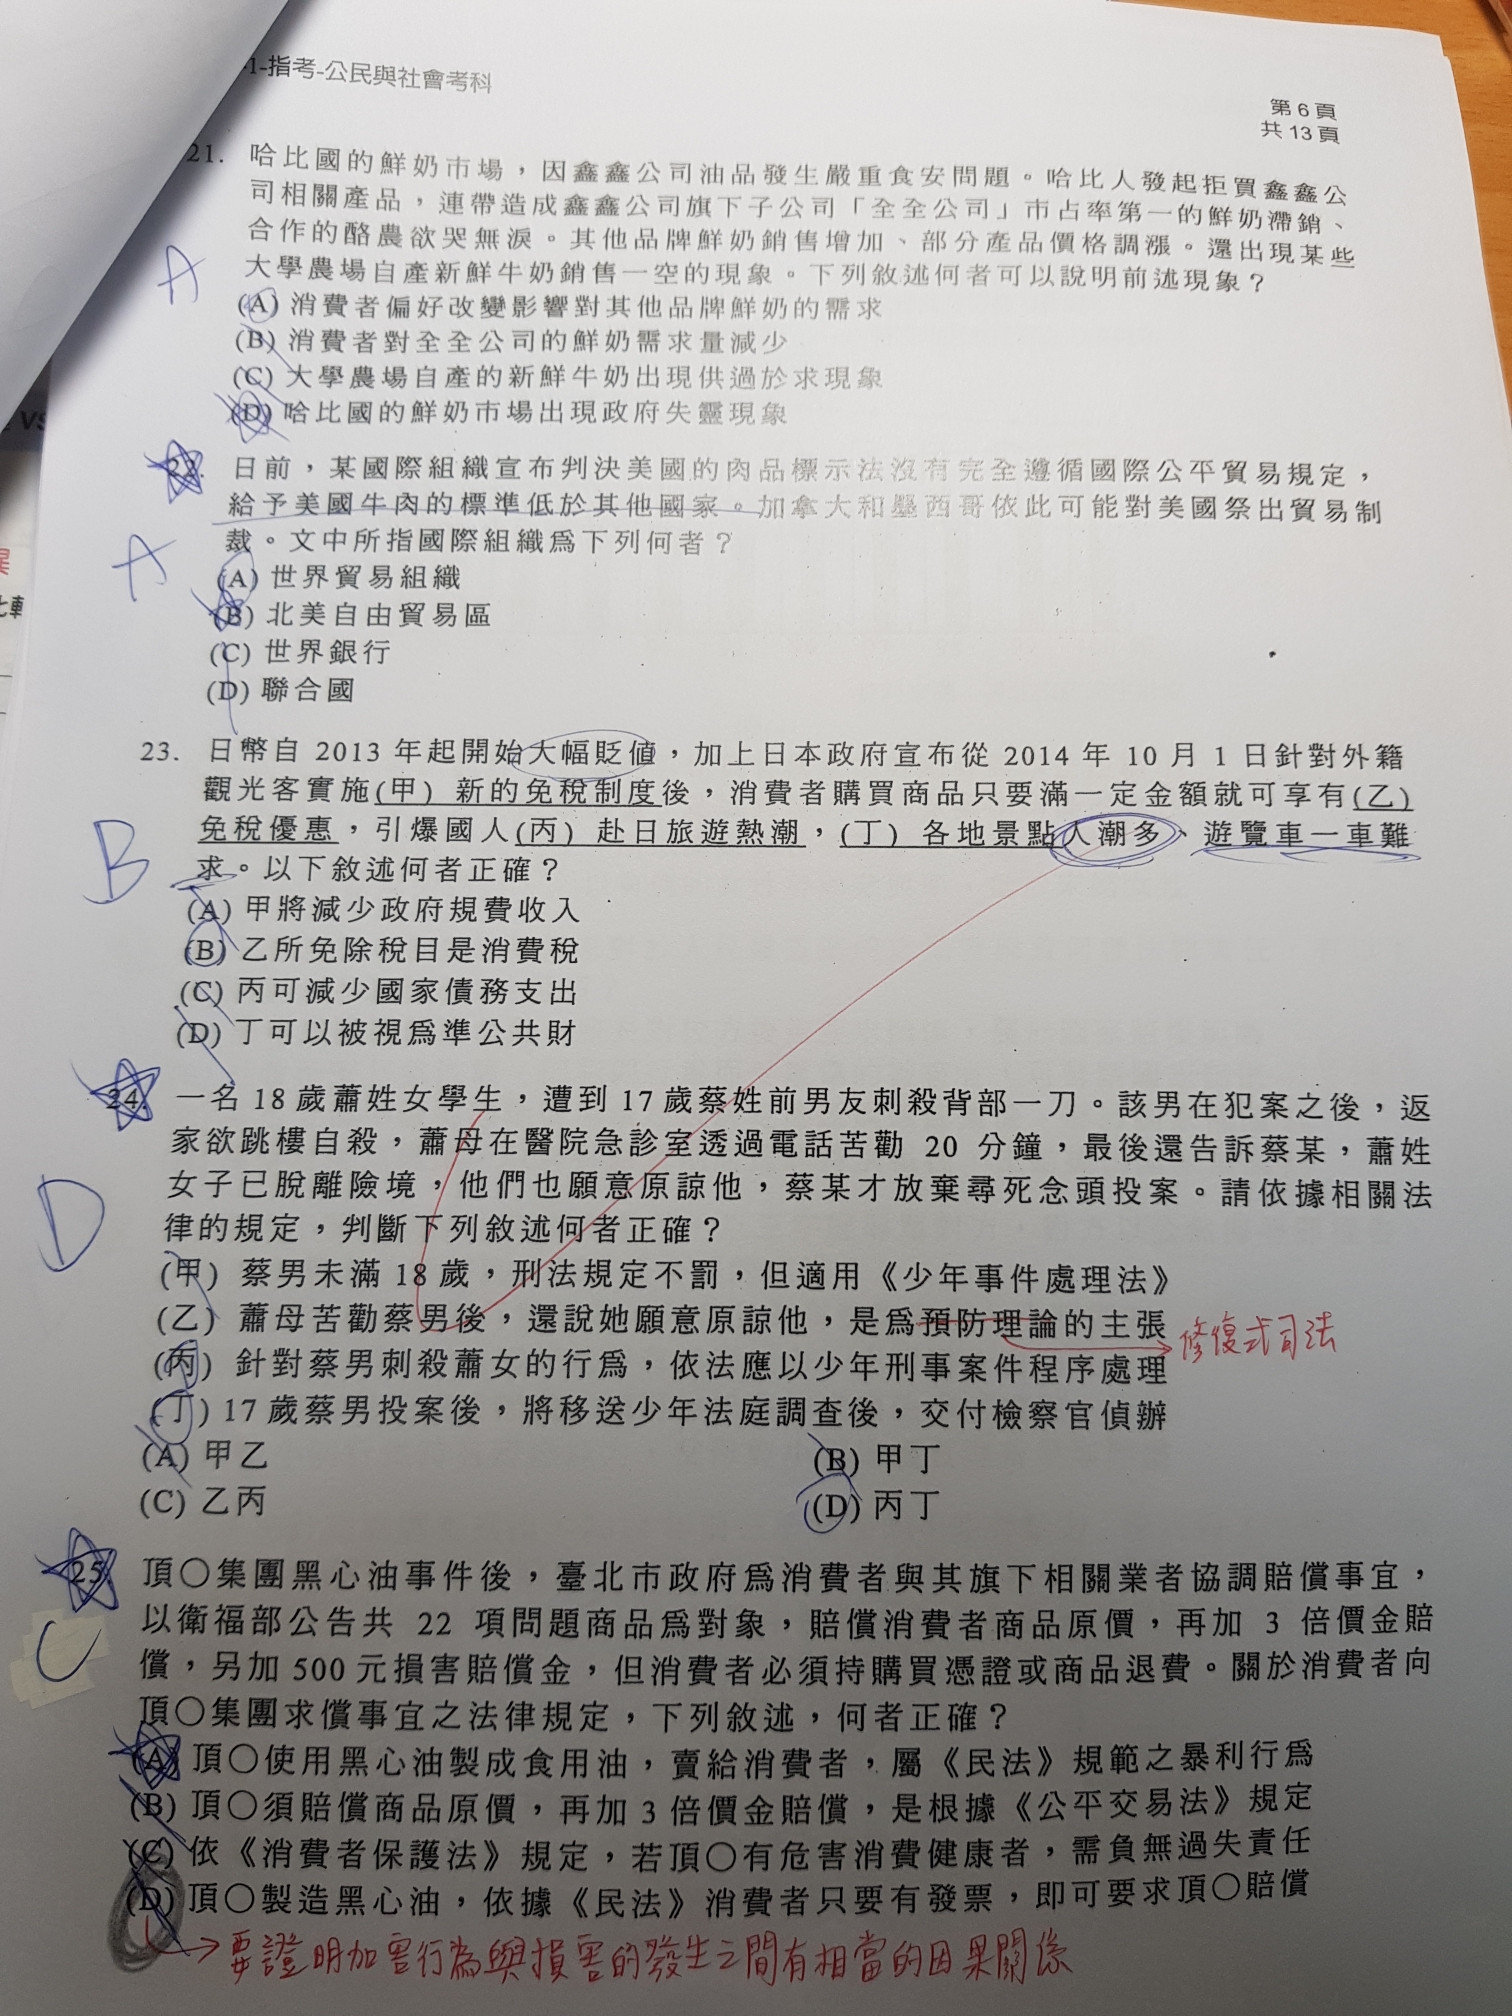 -1-指考-公民與社會考科
第6頁
共13頁
21. 哈比國的鮮奶市場，因鑫鑫公司油品發生嚴重食安問題。哈比人發起拒買鑫鑫公
司相關產品，連帶造成鑫鑫公司旗下子公司「全全公司」市占率第一的鮮奶滯銷、
合作的酪農欲哭無淚。其他品牌鮮奶銷售增加、部分產品價格調漲。還出現某些
大學農場自產新鮮牛奶銷售一空的現象。下列敘述何者可以說明前述現象？
A
(A) 消費者偏好改變影響對其他品牌鮮奶的需求
(B) 消費者對全全公司的鮮奶需求量減少
(C) 大學農場自產的新鮮牛奶出現供過於求現象
(D) 哈比國的鮮奶市場出現政府失靈現象
22. 日前，某國際組織宣布判決美國的肉品標示法沒有完全遵循國際公平貿易規定，
給予美國牛肉的標準低於其他國家。加拿大和墨西哥依此可能對美國祭出貿易制
裁。文中所指國際組織為下列何者？
A
(A) 世界貿易組織
(B) 北美自由貿易區
(C) 世界銀行
(D) 聯合國
23. 日幣自 2013 年起開始大幅貶值，加上日本政府宣布從 2014 年 10 月 1 日針對外籍
觀光客實施(甲) 新的免稅制度後，消費者購買商品只要滿一定金額就可享有(乙)
免稅優惠，引爆國人(丙) 赴日旅遊熱潮，(丁) 各地景點人潮多、遊覽車一車難
求。以下敘述何者正確？
B
(A) 甲將減少政府規費收入
(B) 乙所免除稅目是消費稅
(C) 丙可減少國家債務支出
(D) 丁可以被視為準公共財
24. 一名 18 歲蕭姓女學生，遭到 17 歲蔡姓前男友刺殺背部一刀。該男在犯案之後，返
家欲跳樓自殺，蕭母在醫院急診室透過電話苦勸 20 分鐘，最後還告訴蔡某，蕭姓
女子已脫離險境，他們也願意原諒他，蔡某才放棄尋死念頭投案。請依據相關法
律的規定，判斷下列敘述何者正確？
D
(甲) 蔡男未滿 18 歲，刑法規定不罰，但適用《少年事件處理法》
(乙) 蕭母苦勸蔡男後，還說她願意原諒他，是為預防理論的主張
修復式司法
(丙) 針對蔡男刺殺蕭女的行為，依法應以少年刑事案件程序處理
(丁) 17 歲蔡男投案後，將移送少年法庭調查後，交付檢察官偵辦
(A) 甲乙 (B) 甲丁
(C) 乙丙 (D) 丙丁
25. 頂○集團黑心油事件後，臺北市政府為消費者與其旗下相關業者協調賠償事宜，
以衛福部公告共 22 項問題商品為對象，賠償消費者商品原價，再加 3 倍價金賠
償，另加 500 元損害賠償金，但消費者必須持購買憑證或商品退費。關於消費者向
頂○集團求償事宜之法律規定，下列敘述，何者正確？
C
(A) 頂○使用黑心油製成食用油，賣給消費者，屬《民法》規範之暴利行為
(B) 頂○須賠償商品原價，再加 3 倍價金賠償，是根據《公平交易法》規定
(C) 依《消費者保護法》規定，若頂○有危害消費健康者，需負無過失責任
(D) 頂○製造黑心油，依據《民法》消費者只要有發票，即可要求頂○賠償
要證明加害行為與損害的發生之間有相當的因果關係